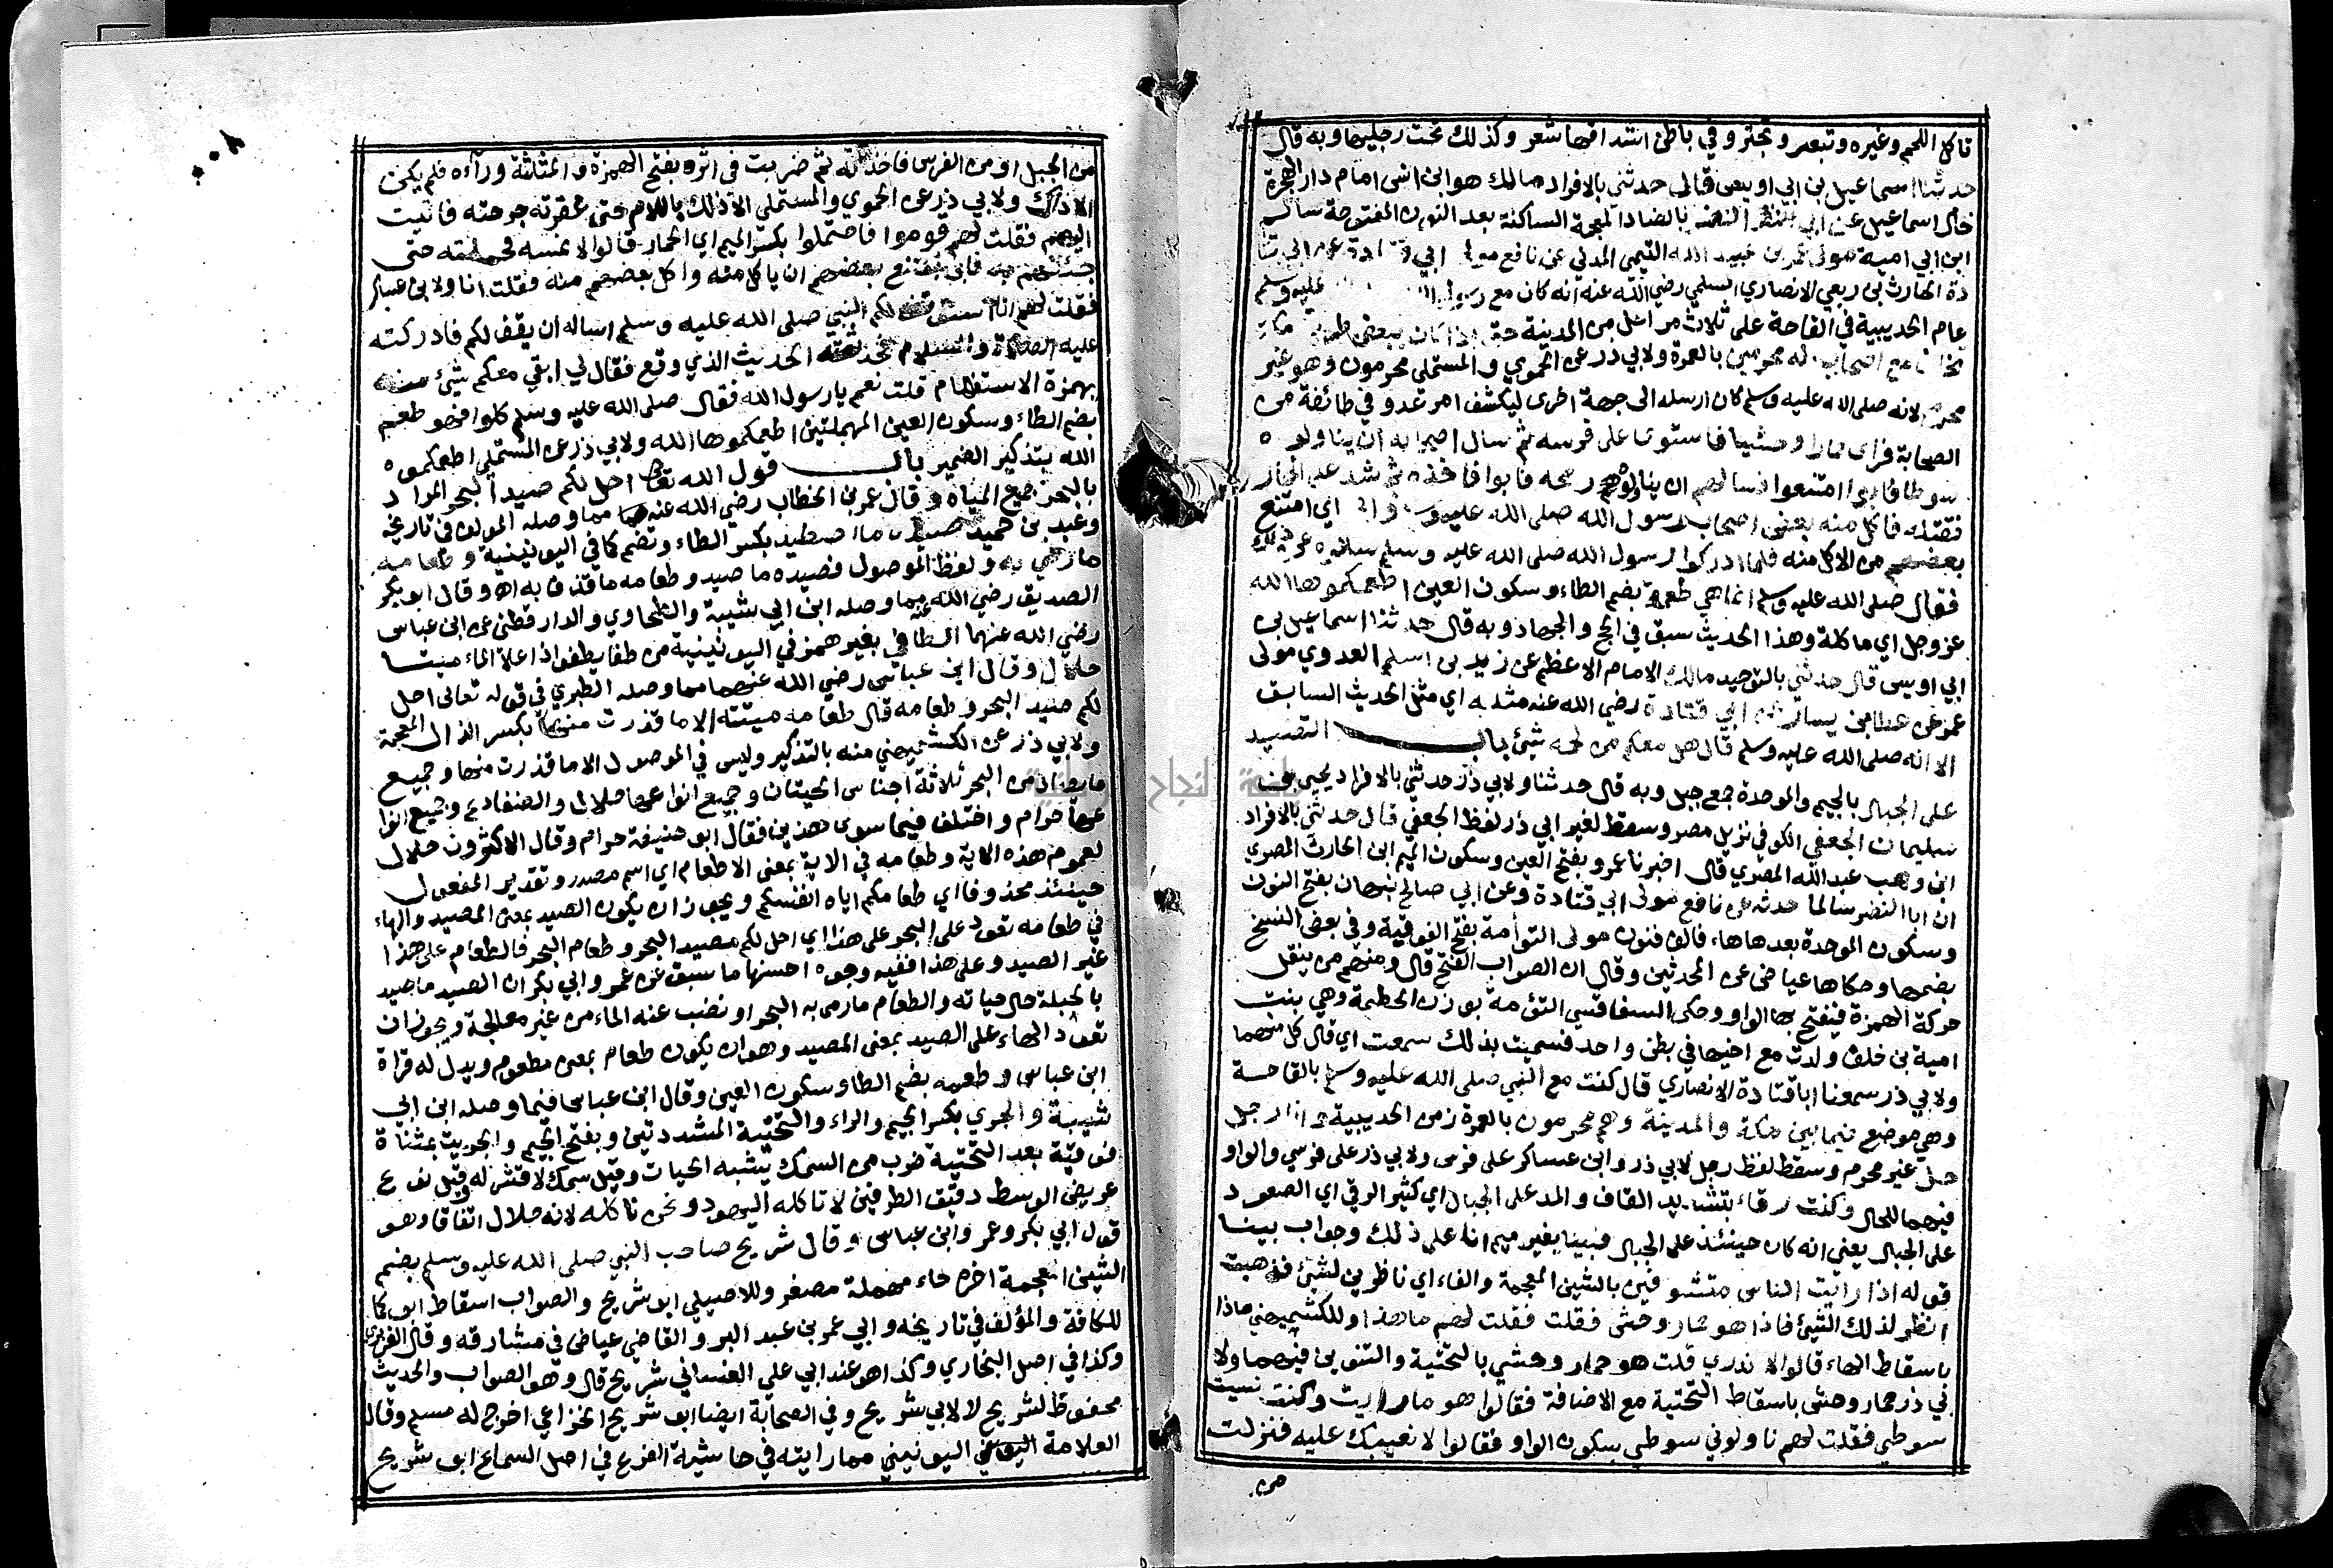 تاكل اللحم وغيره وتبعر وتجتر وفي باطن اشداقها شعر وكذلك تحت رجليها وبه قال
حدثنا اسماعيل بن ابي اويس قال حدثني بالافراد مالك هو ابن انس امام دار الهجرة
خال اسماعيل عن ابي النضر بالضاد المعجمة الساكنة بعد النون المفتوحة سالم
ابن ابي امية مولى عمر بن عبيد الله التيمي المدني عن نافع مولى ابي قتادة عن ابي قتا
دة الحارث بن ربعي الانصاري السلمي رضي الله عنه انه كان مع رسول الله عليه وسلم
عام الحديبية في القاحة على ثلاث مراحل من المدينة حتى اذا كان ببعض طريق مكة
تخلف مع اصحاب له محرمين بالعمرة ولابي ذر عن الحموي والمستملي محرمون وهو غير
محرم لانه صلى الله عليه وسلم كان ارسله الى جهة اخرى ليكشف امر عدو في طائفة من
الصحابة فراى حمارا وحشيا فاستوى على فرسه ثم سال اصحابه ان يناولوه
سوطا فابوا امتنعوا فسالهم ان يناولوه رمحه فابوا فاخذه ثم شد على الحمار
فقتله فاكل منه بعض اصحاب رسول الله صلى الله عليه وسلم وابى اي امتنع
بعضهم من الاكل منه فلما ادركوا رسول الله صلى الله عليه وسلم سالوه عن ذلك
فقال صلى الله عليه وسلم انما هي طعمة بضم الطاء وسكون العين اطعمكموها الله
عز وجل اي ماكلة وهذا الحديث سبق في الحج والجهاد وبه قال حدثنا اسماعيل بن
ابي اويس قال حدثني بالتوحيد مالك الامام الاعظم عن زيد بن اسلم العدوي مولى
عمر عن عطا بن يسار عن ابي قتادة رضي الله عنه مثله اي مثل الحديث السابق
الا انه صلى الله عليه وسلم قال هل معكم من لحمه شئ باب التصيد
على الجبال بالجيم والموحدة جمع جبل وبه قال حدثنا ولابي ذر حدثني بالافراد يحيى بن
سليمان الجعفي الكوفي نزيل مصر وسقط لغير ابي ذر لفظ الجعفي قال حدثني بالافراد
ابن وهب عبد الله المصري قال اخبرنا عمرو بفتح العين وسكون الميم ابن الحارث المصري
ان ابا النضر سالما حدثه عن نافع مولى ابي قتادة وعن ابي صالح نبهان بفتح النون
وسكون الموحدة بعدها هاء فالف فنون مولى التوأمة بفتح الفوقية وفي بعض النسخ
بضمها وحكاها عياض عن المحدثين وقال ان الصواب الفتح قال ومنهم من ينقل
حركة الهمزة فيفتح بها الواو وحكى السفاقسي التؤمة بوزن الحطمة وهي بنت
امية بن خلف ولدت مع اختها في بطن واحد فسميت بذلك سمعت اي قال كل منهما
ولابي ذر سمعنا ابا قتادة الانصاري قال كنت مع النبي صلى الله عليه وسلم بالقاحة
وهي موضع فيما بين مكة والمدينة وهم محرمون بالعمرة زمن الحديبية وانا رجل
حل غير محرم وسقط لفظ رجل لابي ذر وابن عساكر على فرس ولابي ذر على فرسي والواو
فيهما للحال وكنت رقاء بتشديد القاف والمد على الجبال اي كثير الرقي اي الصعود
على الجبال يعني انه كان حينئذ على الجبال فبينا بغير ميم انا على ذلك وجواب بينا
قوله اذ رايت الناس متشوفين بالشين المعجمة والفاء اي ناظرين لشئ فذهبت
انظر لذلك الشئ فاذا هو حمار وحش فقلت فقلت لهم ما هذا وللكشميهني ماذا
باسقاط الهاء قالوا لا ندري قلت هو حمار وحشي بالتحتية والتنوين فيهما ولا
بي ذر حمار وحش باسقاط التحتية مع الاضافة فقالوا هو ما رايت وكنت نسيت
سوطي فقلت لهم ناولوني سوطي بسكون الواو فقالوا لا نعينك عليه فنزلت
من
٨٠٠
من الجبل او من الفرس فاخذته ثم ضربت في اثره بفتح الهمزة والمثلثة وراءه فلم يكن
الا ذاك ولابي ذر عن الحموي والمستملي الا ذلك باللام حتى عقرته جرحته فاتيت
اليهم فقلت لهم قوموا فاحتملوا بكسر الميم اي الحمار قالوا لا نمسه فحملته حتى
جئتهم به فابى فامتنع بعضهم ان ياكل منه واكل بعضهم منه فقلت انا ولابن عساكر
فقلت لهم انا استوقف لكم النبي صلى الله عليه وسلم اساله ان يقف لكم فادركته
عليه الصلاة والسلام فحدثته الحديث الذي وقع فقال لي ابقي معكم شئ منه
بهمزة الاستفهام قلت نعم يا رسول الله فقال صلى الله عليه وسلم كلوا فهو طعم
بضم الطاء وسكون العين المهملتين اطعمكموها الله ولابي ذر عن المستملي اطعمكموه
الله بتذكير الضمير باب قول الله تعالى احل لكم صيد البحر المراد
بالبحر جميع المياه وقال عمر بن الخطاب رضي الله عنه مما وصله المولف في تاريخه
وعبد بن حميد صيده ما اصطيد بكسر الطاء وتضم كما في اليونينية وطعامه
ما رمى به ولفظ الموصول فصيده ما صيد وطعامه ما قذف به اهـ وقال ابو بكر
الصديق رضي الله عنه مما وصله ابن ابي شيبة والطحاوي والدارقطني عن ابن عباس
رضي الله عنهما الطافي بغير همز في اليونينية من طفا يطفو اذا علا الماء ميتا
حلال وقال ابن عباس رضي الله عنهما مما وصله الطبري في قوله تعالى احل
لكم صيد البحر وطعامه قال طعامه ميتته الا ما قذرت منها بكسر الذال المعجمة
ولابي ذر عن الكشميهني منه بالتذكير وليس في الموصول الا ما قذرت منها وجميع
ما يصاد من البحر ثلاثة اجناس الحيتان وجميع انواعها حلال والضفادع وجميع انوا
عها حرام واختلف فيما سوى هذين فقال ابو حنيفة حرام وقال الاكثرون حلال
لعموم هذه الاية وطعامه في الاية بمعنى الاطعام اي اسم مصدر وتقدير المفعول
حينئذ محذوفا اي طعامكم اياه انفسكم ويجوز ان يكون الصيد بمعنى المصيد والهاء
في طعامه تعود على البحر على هذا اي احل لكم مصيد البحر وطعام البحر فالطعام على هذا
غير الصيد وعلى هذا ففيه وجوه احسنها ما سبق عن عمر وابي بكر ان الصيد ما صيد
بالحيلة حال حياته والطعام ما رمى به البحر او نضب عنه الماء من غير معالجة ويجوز ان
تعود الهاء على الصيد بمعنى المصيد وهو ان يكون طعام بمعنى مطعوم ويدل له قراة
ابن عباس وطعمه بضم الطا وسكون العين وقال ابن عباس فيما وصله ابن ابي
شيبة والجري بكسر الجيم والراء والتحتية المشددتين وبفتح الجيم والجريت بمثناة
فوقية بعد التحتية ضرب من السمك يشبه الحيات وقيل سمك لا قشر له وقيل نوع
عريض الوسط دقيق الطرفين لا تاكله اليهود ونحن ناكله لانه حلال اتفاقا وهو
قول ابي بكر وعمر وابن عباس وقال شريح صاحب النبي صلى الله عليه وسلم بضم
الشين المعجمة اخره حاء مهملة مصغر وللاصيلي ابو شريح والصواب اسقاط ابو كما
للكافة والمؤلف في تاريخه وابي عمر بن عبد البر والقاضي عياض في مشارقه وقال الفربري
وكذا في اصل البخاري وكذا هو عند ابي علي الغساني شريح قال وهو الصواب والحديث
محفوظ لشريح لا لابي شريح وفي الصحابة ايضا ابو شريح الخزاعي اخرج له مسلم وقال
العلامة اليونيني مما رايته في حاشية الفرع في اصل السماع ابو شريح